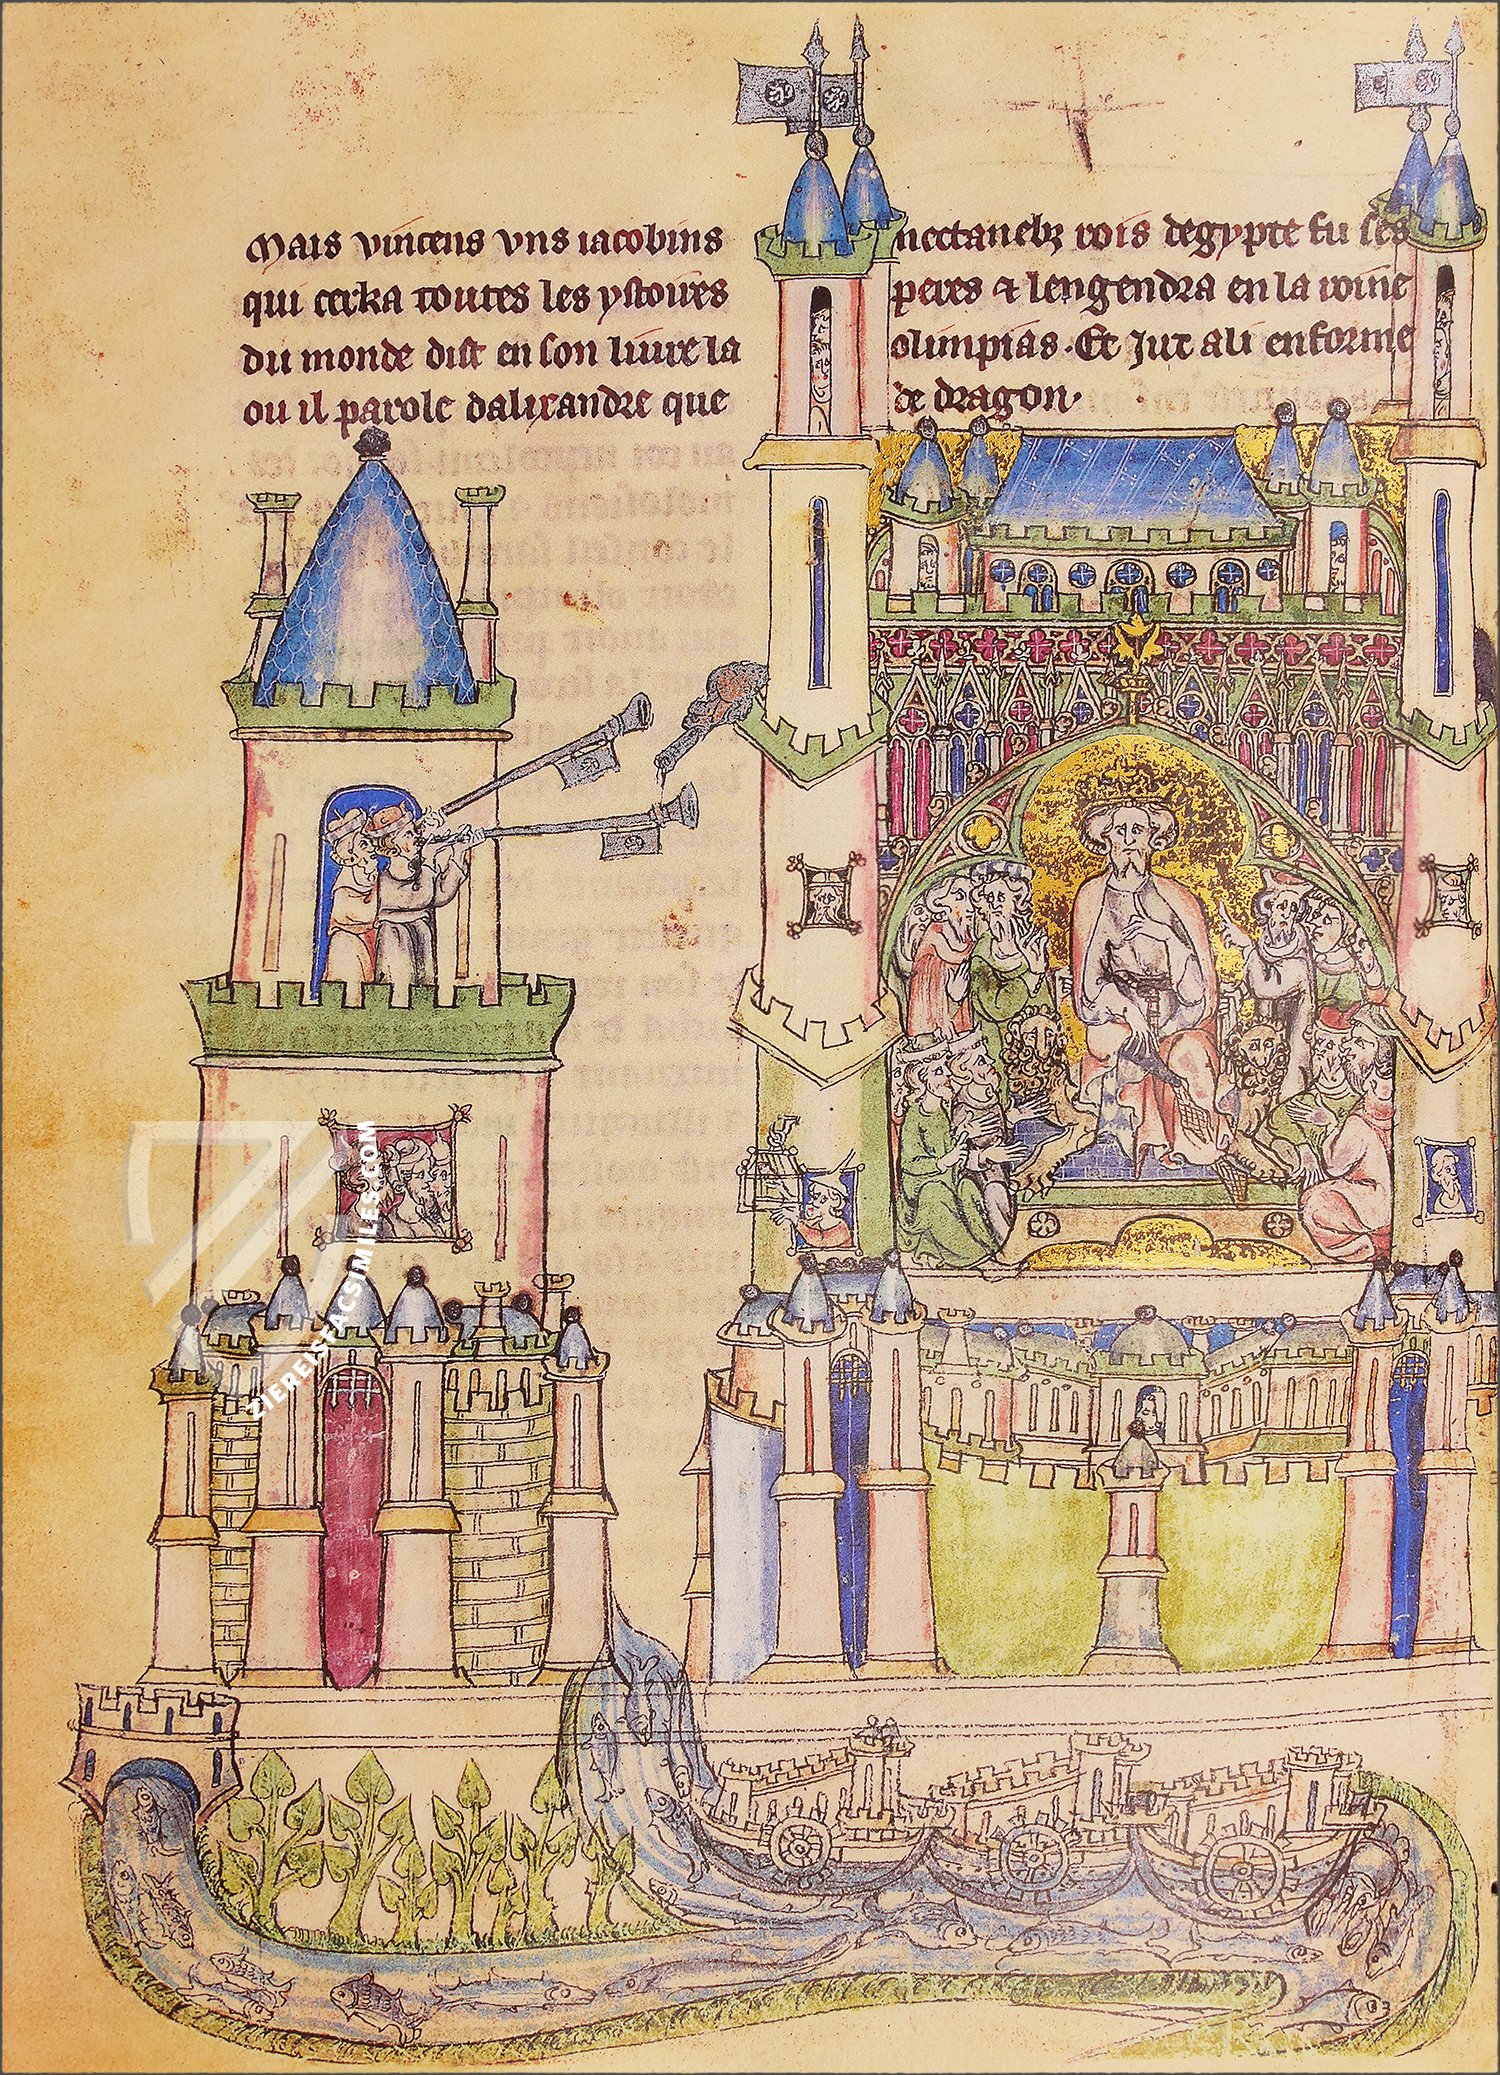 Mais vincens vns iacobins
qui cerka toutes les ystoires
du monde dist en son liure la
ou il parole dalixandre que
nectanebꝫ rois degypte fu ses
peres ⁊ lengendra en la roine
olimpias. Et Jut ali enforme
de dragon.
ZIEREISFACSIMILES.COM